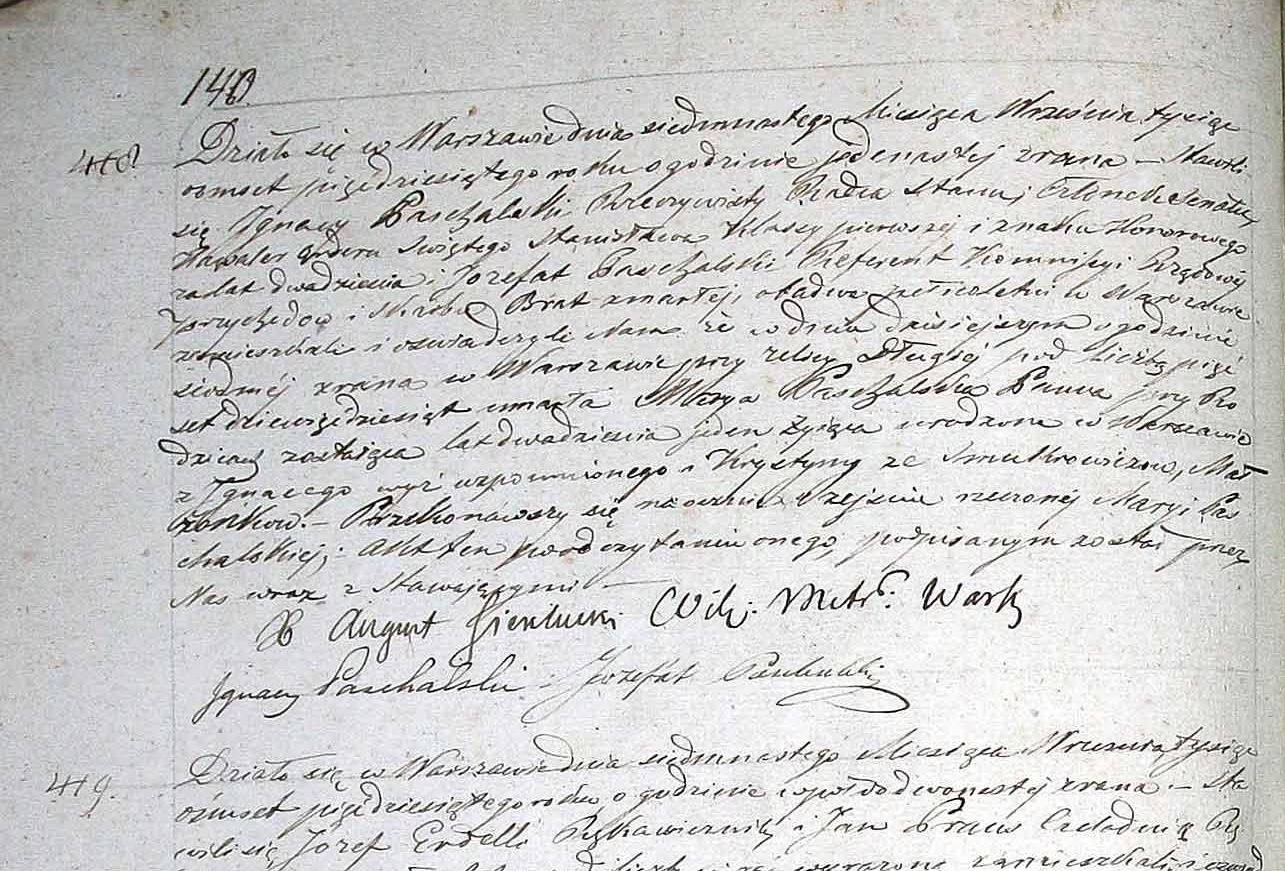 140.
418.
Działo się w Warszawie dnia siedmnastego Miesiąca Września tysiąc
ośmset pięćdziesiątego roku o godzinie jedenastej zrana – Stawili
się Ignacy Paschalski Rzeczywisty Radca Stanu, Członek Senatu,
Kawaler orderu Świętego Stanisława Klassy pierwszej i znaku Honorowego
za lat dwadzieścia i Jozefat Paschalski Referent Kommissyi Rządowej
przychodów i Skarbu Brat zmarłej, obadwa pełnoletni w Warszawie
zamieszkali i oświadczyli Nam że w dniu dzisiejszym o godzinie
siodmej zrana w Warszawie przy ulicy Długiej pod liczbą pięć
set dziewięćdziesiąt umarła Marya Paschalska Panna przy Ro
dzicach zostająca lat dwadzieścia jeden życia urodzona w Warszawie
z Ignacego wyż wspomnionego i Krystyny ze Małż
żonków. – Przekonawszy się naocznie o zejściu rzeczonej Maryi Pas
chalskiej, Akt ten po odczytaniu onego, podpisanym został przez
Nas wraz z Stawającymi –
X August Wik: Metr: Warsz
Ignacy Paschalski Jozefat Paschalski
419.
Działo się w Warszawie dnia siedmnastego Miesiąca Września tysiąc
ośmset pięćdziesiątego roku, o godzinie wpół do dwonastej zrana. – Sta
wili się, Jozef i Jan
zamieszkali